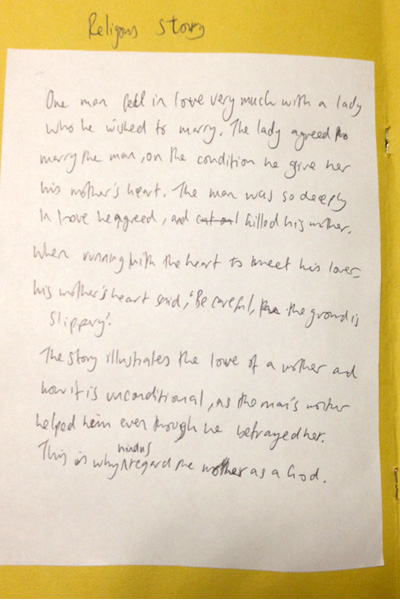 Religous Story
One man fell in love very much with a lady
who he wished to marry. The lady agreed to
marry the man, on the condition he give her
his mother's heart. The man was so deeply
in love he agreed, and cut out killed his mother.
When running with the heart to meet his lover,
his mother's heart said, 'Be careful, the ground is
slippery'.
The story illustrates the love of a mother and
how it is unconditional, as the man's mother
helped him even though he betrayed her.
This is why hindus regard the mother as a God.